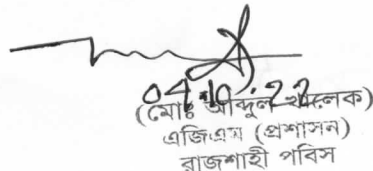 04.10.22
(মোঃ আব্দুল খালেক)
এজিএম (প্রশাসন)
রাজশাহী পবিস